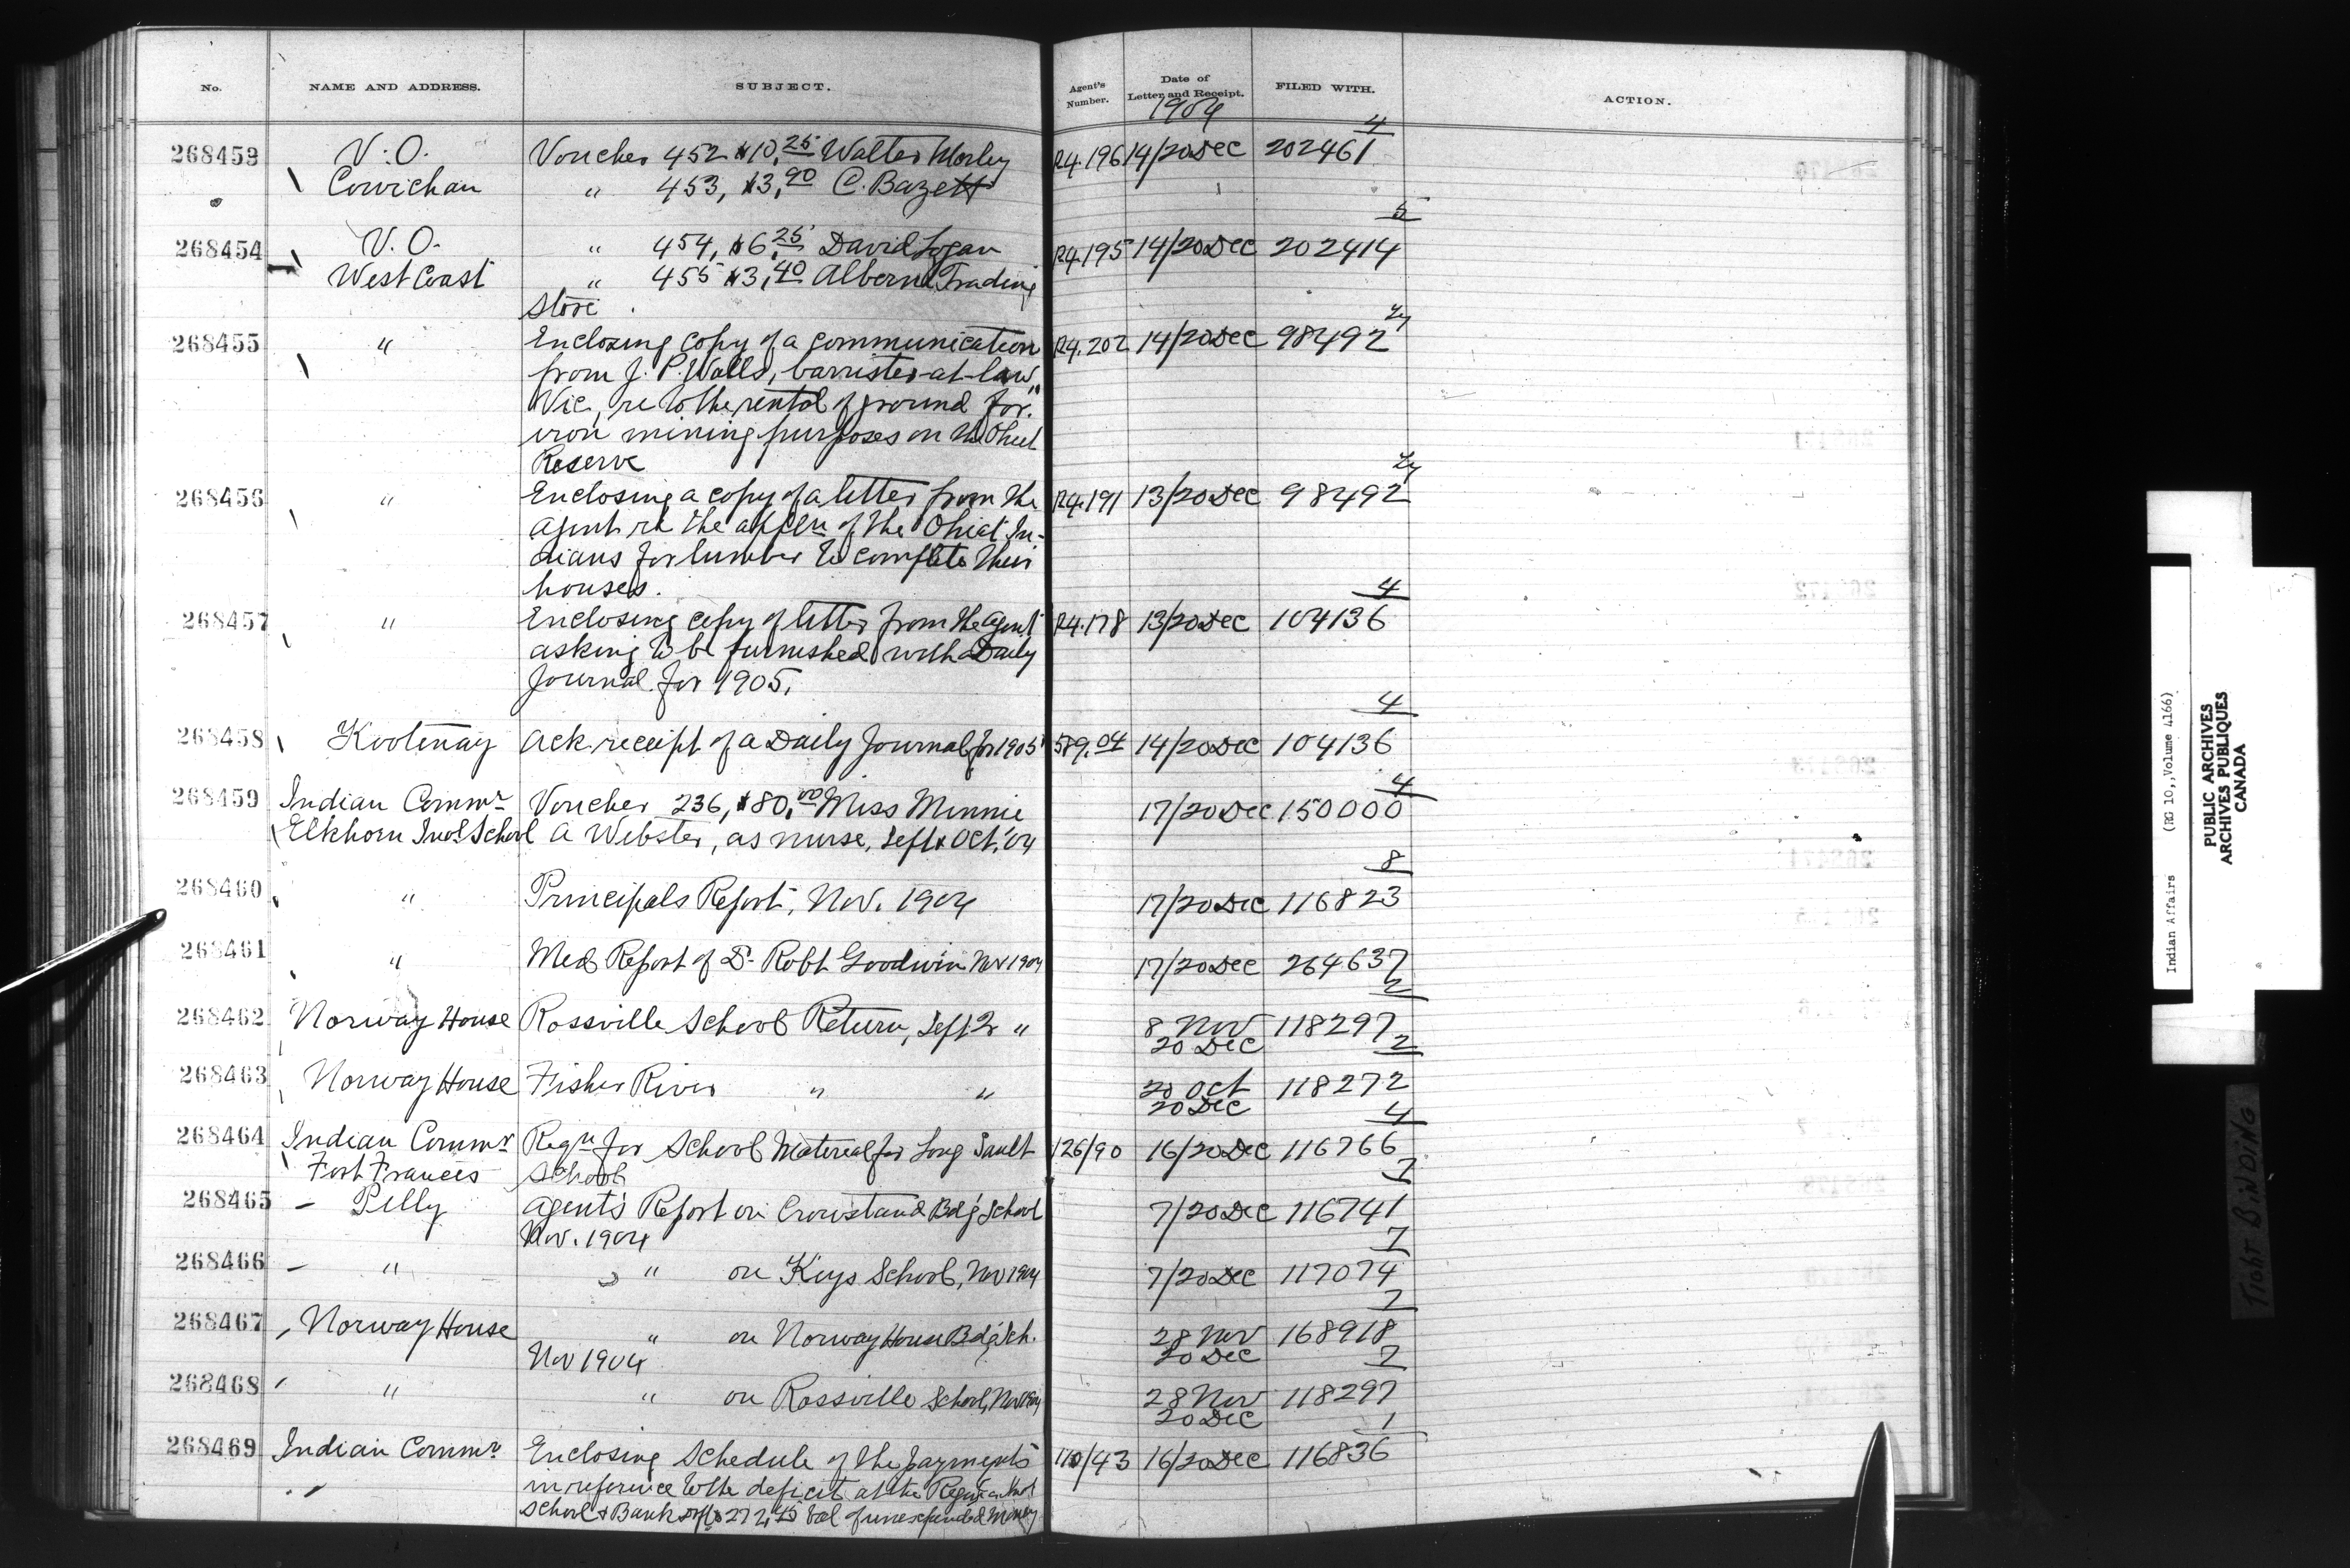 No. NAME AND ADDRESS. SUBJECT. Agent's Number. Date of Letter and Receipt. FILED WITH. ACTION.
1904
4
268453 V.O. Voucher 452 $10.25 Walter Morley R4.196 14/20 Dec 202461
Cowichan " 453, $3.90 C. Bazett
5
268454 V.O. " 454, $6.25 David Logan R4.195 14/20 Dec 202414
West Coast " 455 $3.40 Alberni Trading
Store
268455 " Enclosing copy of a communication R4.202 14/20 Dec 98492
from J. P. Walls, barrister-at-law,
Vic, re to the rental of ground for
iron mining purposes on the Ohiet
Reserve
268456 " Enclosing a copy of a letter from the R4.191 13/20 Dec 98492
Agent re the appln of the Ohiat In-
dians for lumber to complete their
houses.
4
268457 " Enclosing copy of letter from the Agent R4.178 13/20 Dec 104136
asking to be furnished with a Daily
Journal for 1905.
4
268458 Kootenay Ack receipt of a Daily Journal for 1905 589.04 14/20 Dec 104136
4
268459 Indian Commr Voucher 236, $80.00 Miss Minnie 17/20 Dec 150000
Elkhorn Indl School A Webster, as nurse, Sept & Oct. '04
8
268460 " Principals Report, Nov. 1904 17/20 Dec 116823
268461 " Med Report of Dr Robt Goodwin Nov 1904 17/20 Dec 264637
2
268462 Norway House Rossville School Return, Sept Qr " 8 Nov 118297
20 Dec 2
268463 Norway House Fisher River " " 20 Oct 118272
20 Dec 4
268464 Indian Commr Reqn for School Material for Long Sault 126/90 16/20 Dec 116766
Fort Frances School 7
268465 - Pelly Agent's Report on Crowstand Bdg School 7/20 Dec 116741
Nov. 1904 7
268466 - " " on Keys School, Nov 1904 7/20 Dec 117074
7
268467 Norway House " on Norway House Bdg Sch. 28 Nov 168918
Nov 1904 20 Dec 7
268468 " " on Rossville School, Nov 1904 28 Nov 118297
20 Dec 1
268469 Indian Commr Enclosing Schedule of the payments 110/43 16/20 Dec 116836
in reference to the deficit at the Regina Indl
School & Bank dft $272.45 bal of unexpended money
Indian Affairs (RG 10, Volume 4166)
PUBLIC ARCHIVES
ARCHIVES PUBLIQUES
CANADA
TIGHT BINDING